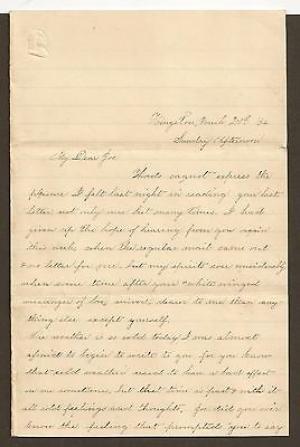 Sunday Afternoon
My Dear Joe
Words cannot express the
pleasure I felt last night in reading your last
letter not only once but many times. I had
given up the hope of hearing from you again
this week, when the regular mail came out
& no letter for me, but my spirits rose
when some time after your "white winged
messenger of love, arrived, dearer to me than any-
thing else except yourself.
The weather is so cold today I was almost
afraid to begin to write to you for you know
that cold weather used to have a bad effect
on me sometimes, but that time is past & with it
all cold feelings and thoughts, for did you ever
know the feeling that prompted you to say